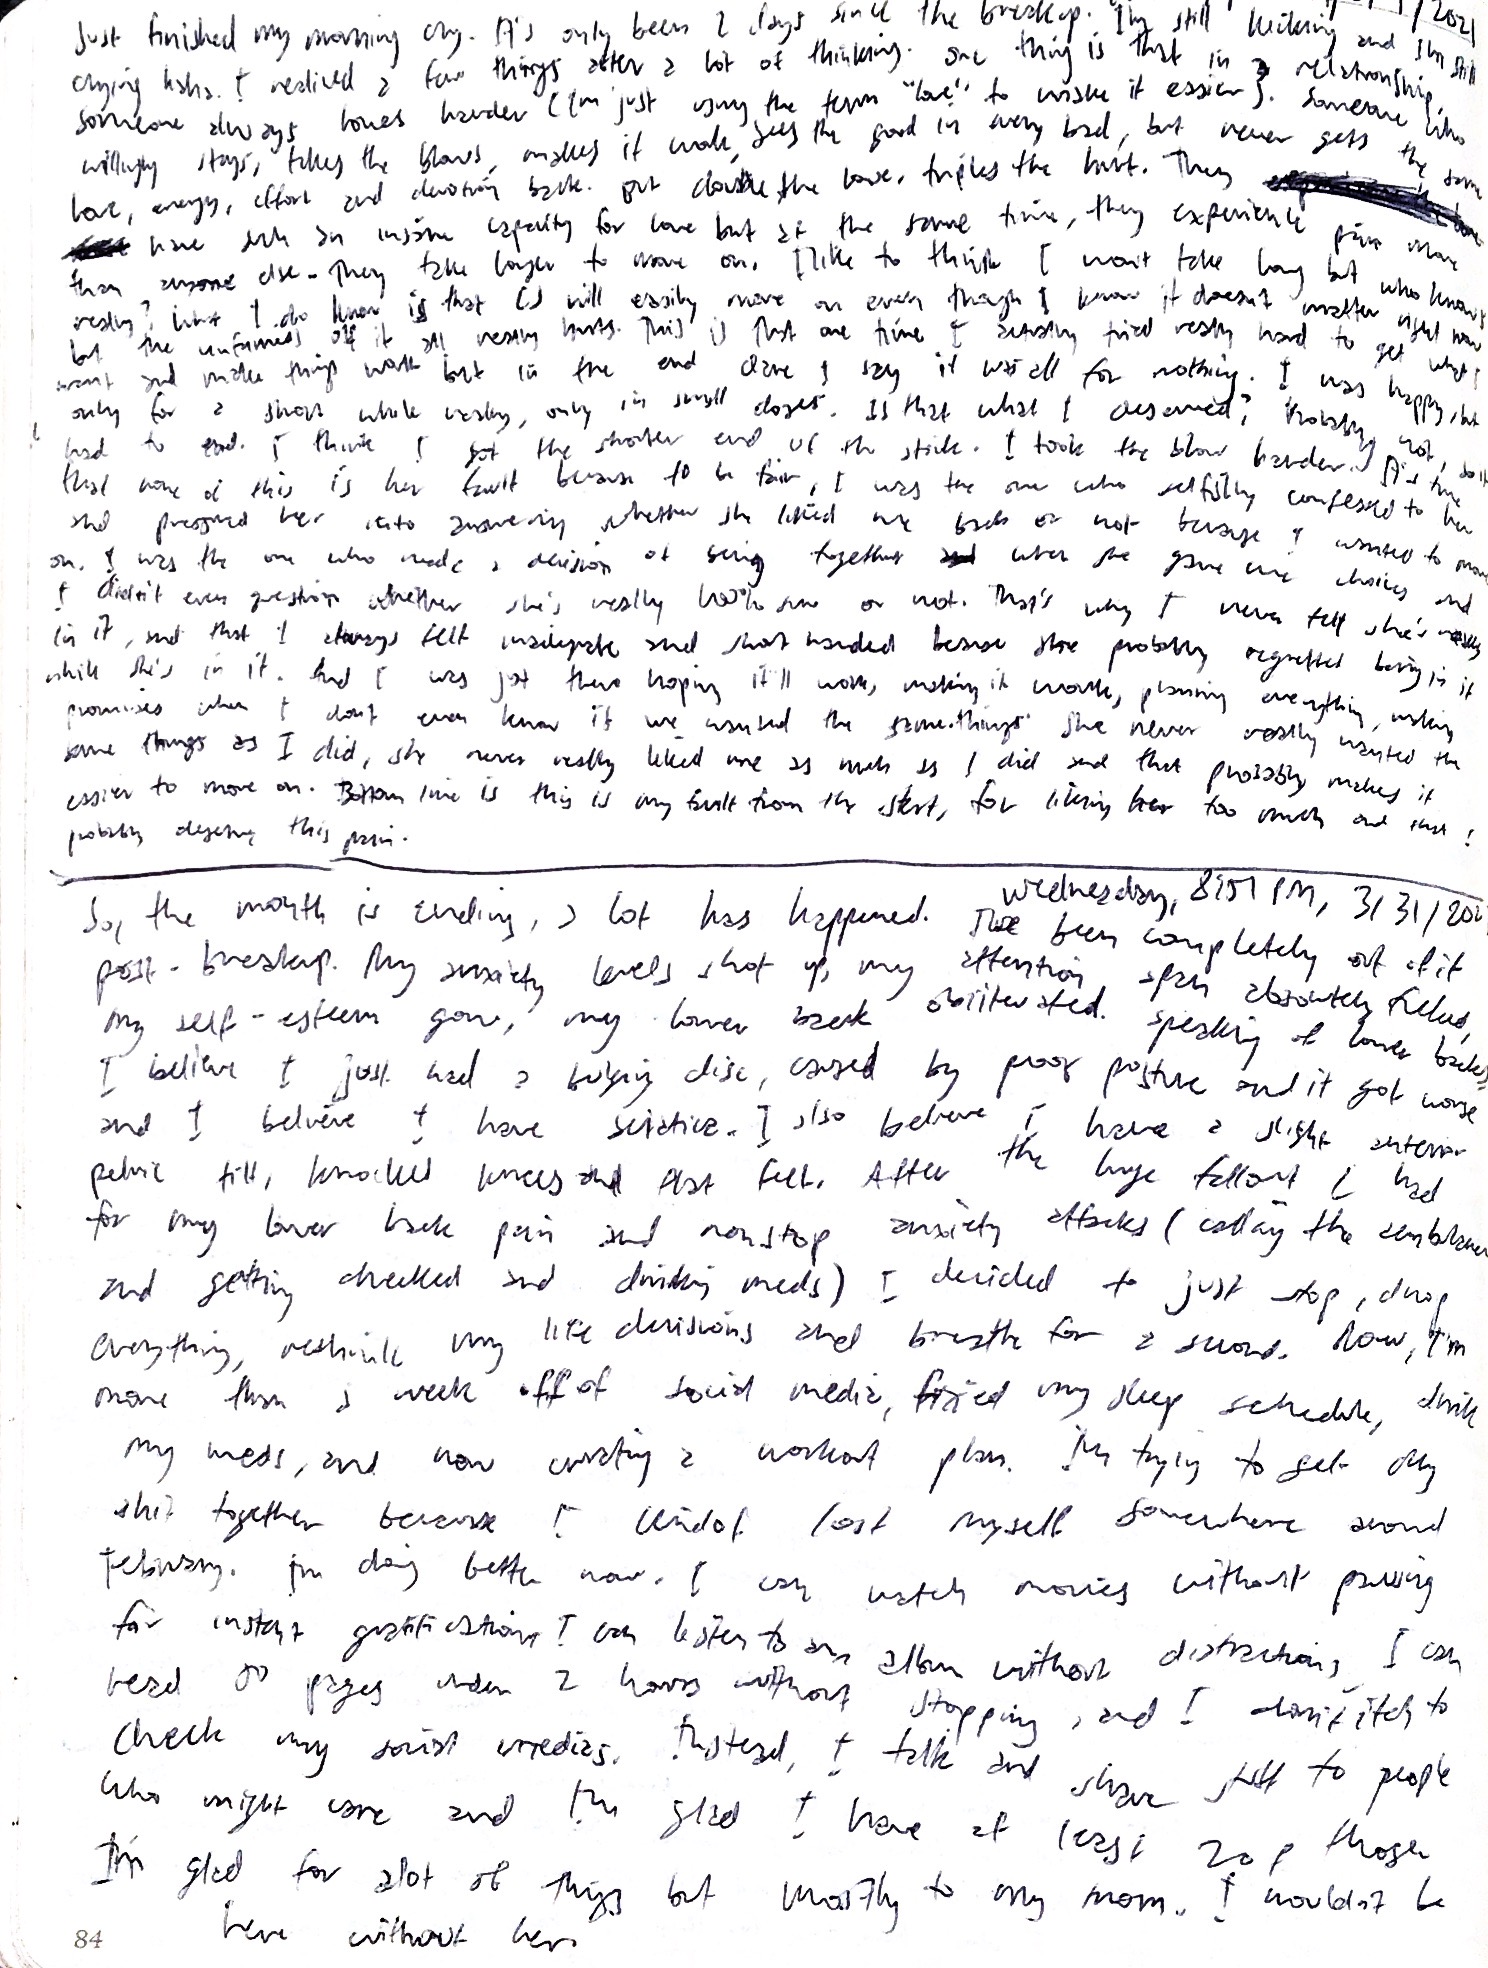 /2021
Just finished my morning cry. It's only been 2 days since the breakup. I'm still and still
crying haha. I realized a few things after a lot of thinking. One thing is that in a relationship,
someone always loves harder (I'm just using the term "love" to make it easier). Someone who
willingly stays, takes the blows, makes it work, sees the good in every bad, but never gets the same
love, energy, effort and devotion back. But double the love, triples the hurt. They
have such an insane capacity for love but at the same time, they experience pain more
than anyone else. They take longer to move on. I like to think I won't take long but who knows
really? What I do know is that will easily move on even though I know it doesn't matter right now
but the unfairness of it all really hurts. This is that one time I actually tried really hard to get what I
want and make things work but in the end dare I say it was all for nothing. I was happy, but
only for a short while really, only in small doses. Is that what I deserved? Probably not, so it
had to end. I think I got the shorter end of the stick. I took the blow harder. It's true
that none of this is her fault because to be fair, I was the one who selfishly confessed to her
and pressured her into answering whether she liked me back or not because I wanted to move
on. I was the one who made a decision of being together when she gave me choices and
I didn't even question whether she's really into me or not. That's why I never felt she's really
in it, and that I always felt inadequate and short handed because she probably regretted being in it
while she's in it. And I was just there hoping it'll work, making it work, planning everything, making
promises when I don't even know if we wanted the same things. She never really wanted the
same things as I did, she never really liked me as much as I did and that probably makes it
easier to move on. Bottom line is this is my fault from the start, for liking her too much and that I
probably deserve this pain.
Wednesday, 8:51 PM, 3/31/2021
So, the month is ending, a lot has happened. I've been completely out of it
post-breakup. My anxiety levels shot up, my attention span absolutely fucked,
my self-esteem gone, my lower back obliterated. Speaking of lower backs,
I believe I just had a bulging disc, caused by poor posture and it got worse
and I believe I have sciatica. I also believe I have a slight anterior
pelvic tilt, knocked knees and flat feet. After the huge fallout I had
for my lower back pain and nonstop anxiety attacks (calling the ambulance
and getting checked and drinking meds) I decided to just stop, drop
everything, rethink my life decisions and breathe for a second. Now, I'm
more than a week off of social media, fixed my sleep schedule, drink
my meds, and now creating a workout plan. I'm trying to get my
shit together because I kindof lost myself somewhere around
February. I'm doing better now. I can watch movies without pausing
for instant gratification, I can listen to an album without distractions, I can
read 80 pages under 2 hours without stopping, and I don't itch to
check my social medias. Instead, I talk and share stuff to people
who might care and I'm glad I have at least 2 of those.
I'm glad for alot of things but mostly to my mom. I wouldn't be
here without her.
84